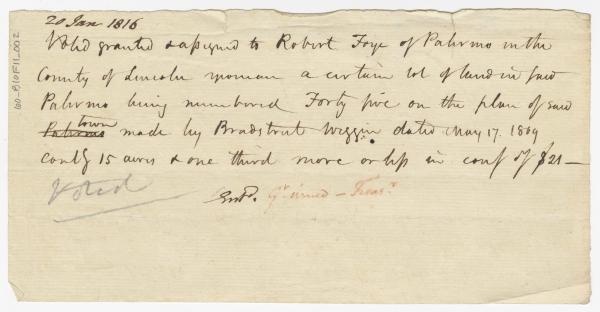 20 Jan 1816
Voted granted & assigned to Robert Foye of Palermo in the
County of Lincoln yeoman a certain lot of land in said
Palermo being numbered Forty five on the plan of said
Palermo town made by Bradstreet Wiggin dated May 17. 1809
contg 15 acres & one third more or less in consn of $21 —
Voted
Entd. — Treasr
100-B10F11_002